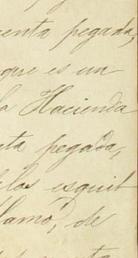 uenta pegada,
que es un
la Hacienda
ta pegada,
los esquit
llamó, de